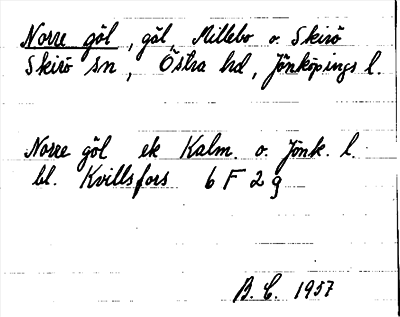 Norre göl, göl, Millebo o. Skirö
Skirö sn, Östra hd, Jönköpings l.
Norre göl ek Kalm. o. Jönk. l.
bl. Kvillsfors 6 F 2 g
B. C. 1957